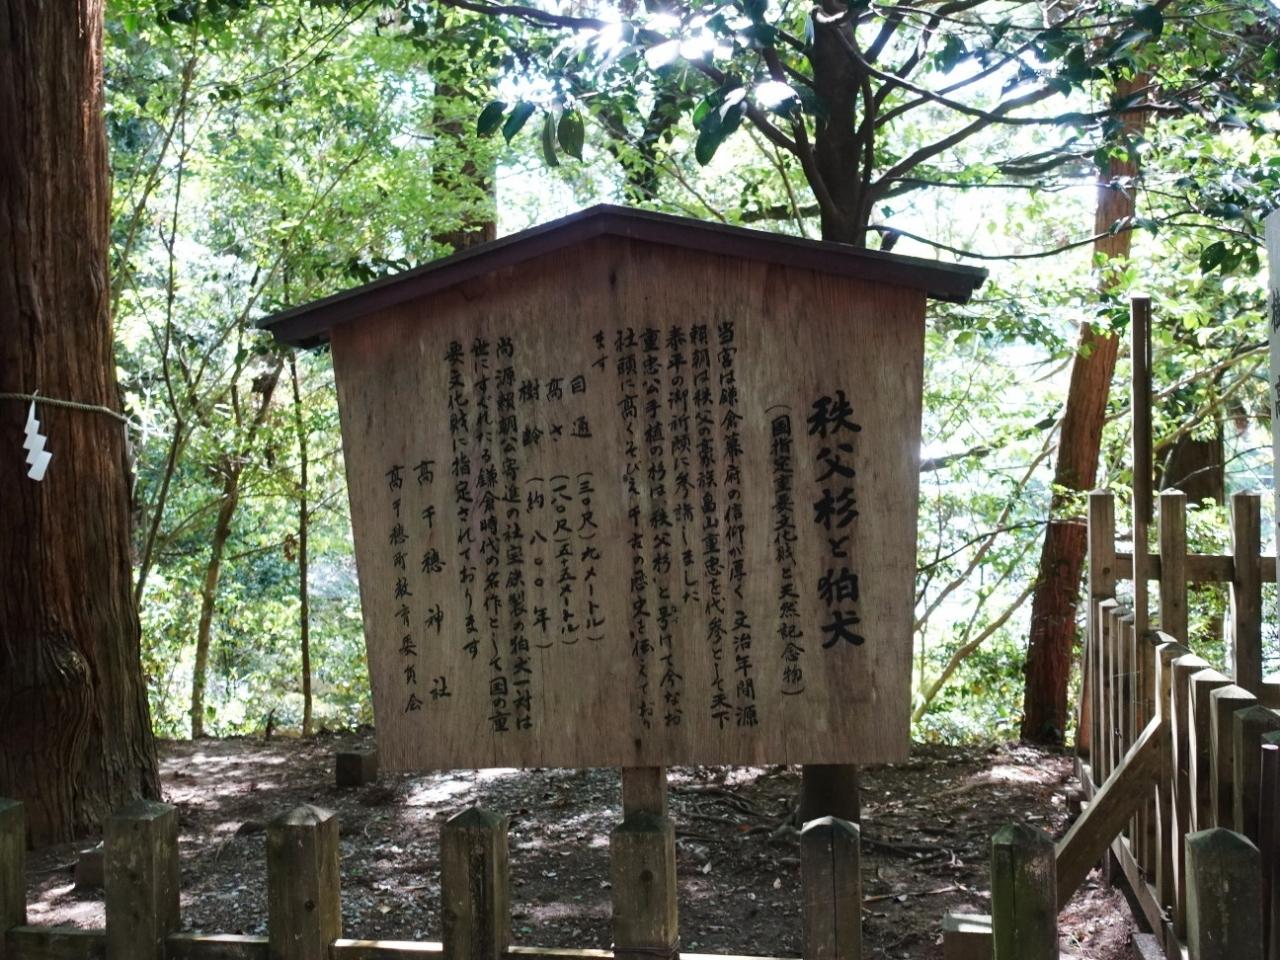 秩父杉と狛犬
(国指定重要文化財と天然記念物)
当宮は鎌倉幕府の信仰が厚く 文治年間源
頼朝は秩父の豪族畠山重忠を代参として天下
泰平の御祈願に参詣しました
重忠公手植の杉は秩父杉と号けて今なお
社頭に高くそびえ千古の歴史を伝えており
ます
目通 (三〇尺)九メートル)
高さ (一八〇尺)五十五メートル)
樹齢 (約八〇〇年)
尚源頼朝公寄進の社宝鉄製の狛犬一対は
世にすぐれたる鎌倉時代の名作として国の重
要文化財に指定されております
高千穂神社
高千穂町教育委員会